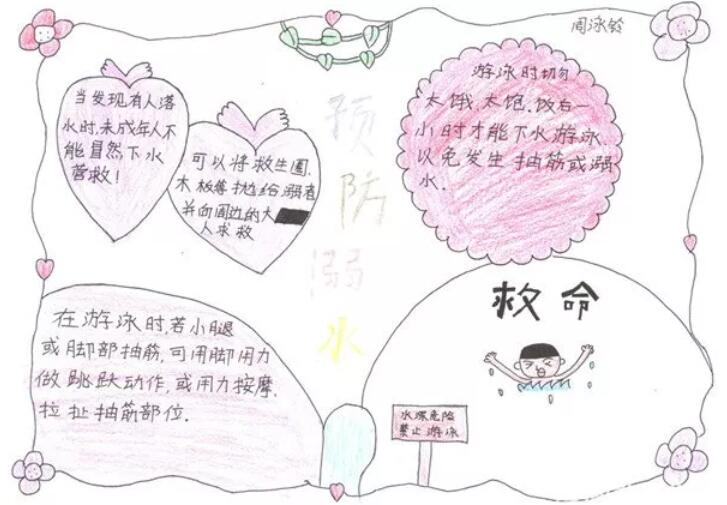 周泳铃
预
防
溺
水
当发现有人落
水时,未成年人不
能冒然下水
营救!
可以将救生圈,
木板等抛给溺者
并向周边的大
人求救
游泳时切勿
太饿、太饱.饭后一
小时才能下水游泳.
以免发生抽筋或溺
水.
在游泳时,若小腿
或脚部抽筋,可用脚用力
做跳跃动作,或用力按摩、
拉扯抽筋部位.
救命
水深危险
禁止游泳